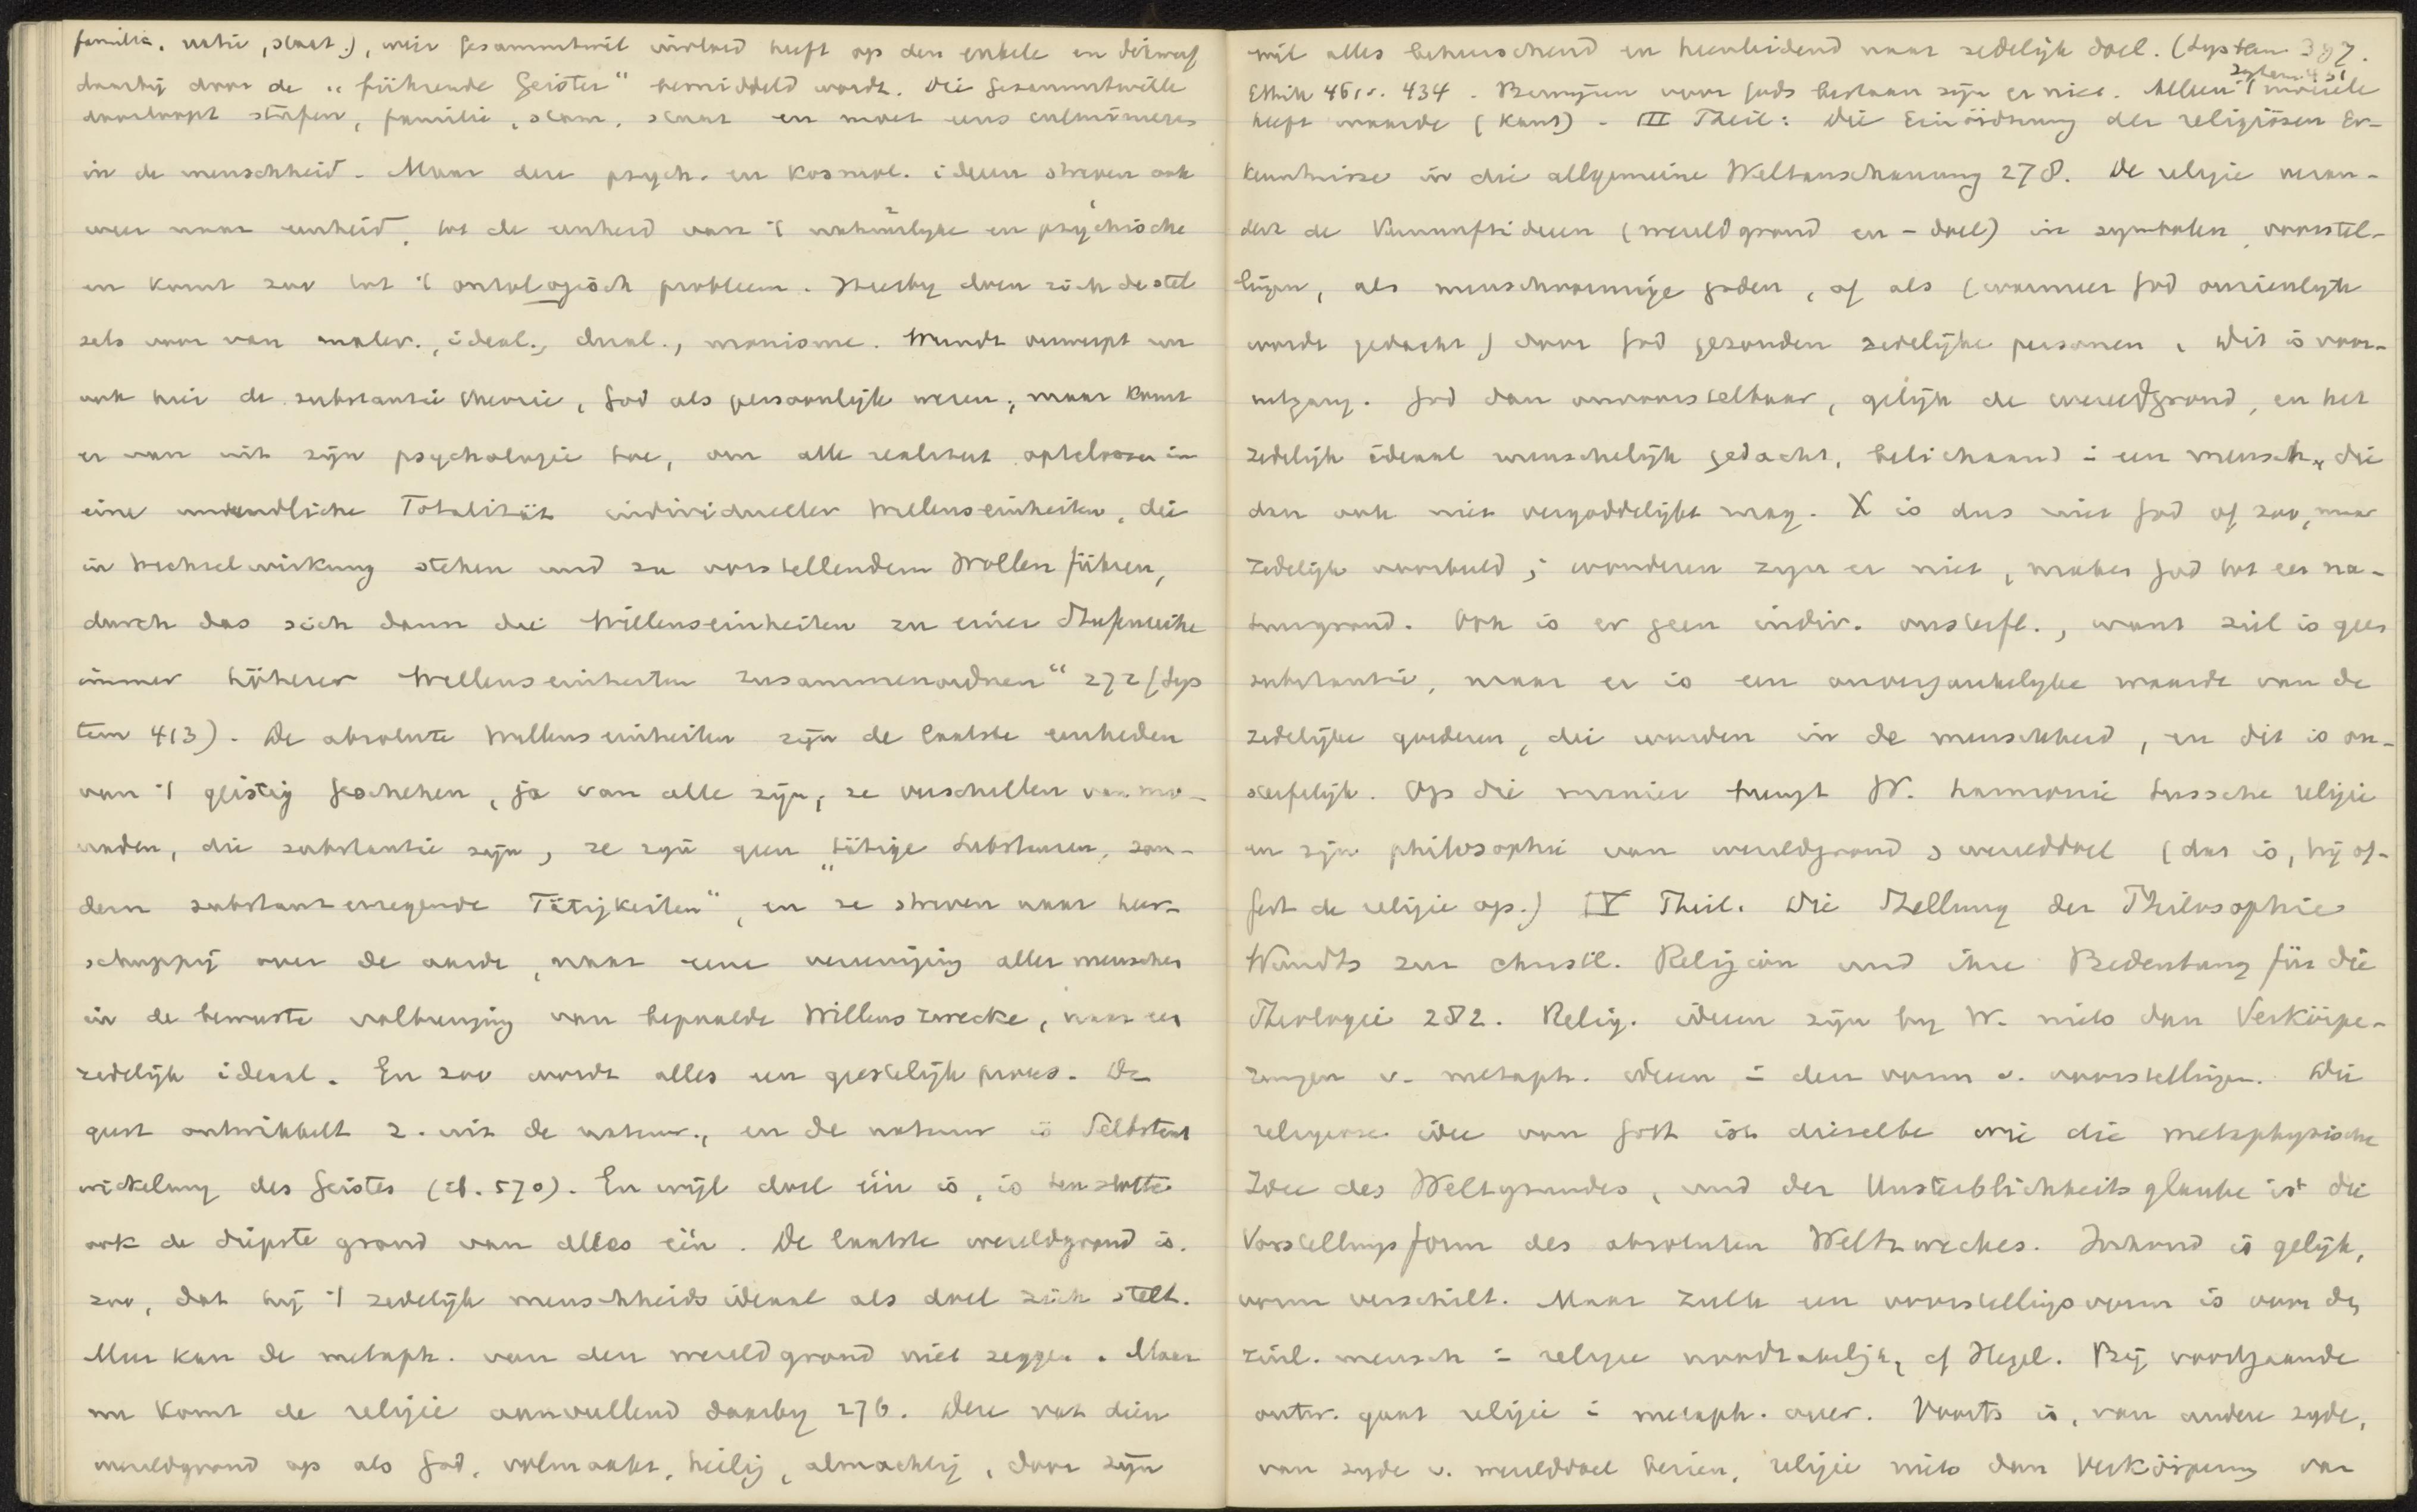 familie, natie, staat.), wier Gesammtwil invloed heeft op den enkele en
daarbij door de „führende Geister“ bemiddeld wordt. Die Gesammtwille
doorloopt stufen, familie, stam, staat en moet eens culmineeren
in de menschheid. Maar deze psych. en kosmol. ideen streven ook
weer naar eenheid, tot de eenheid van 't natuurlyke en psychische
en komt zoo tot 't ontologisch probleem. Hierby doen zich de stel
sels voor van mater., ideal., dual., monisme. Wundt verwerpt nu
ook hier de substantie theorie, God als persoonlijk wezen; maar komt
er van uit zijn psychologie toe, om alle realiteit optelossen in
eine unendliche Totalität individueller Willenseinheiten, die
in Wechselwirkung stehen und zu vorstellendem Wollen führen,
durch das sich dann die Willenseinheiten zu einer Stufenreihe
immer höherer Willenseinheiten zusammenordnen“ 272 (Sys
tem 413). De absolute Willenseinheiten zijn de laatste eenheden
van 't geistig Geschehen, ja van alle zijn; ze verschillen van mo-
naden, die substantie zijn, ze zijn geen „tätige Substanzen, son-
dern substanzerregende Tätigkeiten“, en ze streven naar heer-
schappij over de aarde, naar eene vereeniging aller menschen
in de bewuste volbrenging van bepaalde Willenszwecke, naar een
zedelijk ideaal. En zoo wordt alles een geestelijk proces. De
geest ontwikkelt z. uit de natuur., en de natuur is Selbstent
wickelung des Geistes (ib. 570). En wijl doel één is, is ten slotte
ook de diepste grond van alles één. De laatste wereldgrond is
zoo, dat hij 't zedelijk menschheidsideaal als doel zich stelt.
Meer kan de metaph. van den wereldgrond niet zeggen. Maar
nu komt de religie aanvullend daarby 276. Deze vat dien
wereldgrond op als God, volmaakt, heilig, almachtig, door zijn
wil alles beheerschend en heenleidend naar zedelijk doel. (System 397.
Ethik 461v. 434. Bewijzen voor Gods bestaan zijn er niet. Alleen 't moreele
System 431
heeft waarde (Kant) - III Theil: Die Einordnung der religiösen Er-
kenntnisse in die allgemeine Weltanschauung 278. De religie veran-
dert de Vernunftideen (wereldgrond en -doel) in symbolen, voorstel-
lingen, als menschvormige goden, of als (wanneer God onzienlyk
wordt gedacht) door God gezonden zedelijke personen. Dit is voor-
uitgang. God dan onvoorstelbaar, gelijk de wereldgrond, en het
zedelijk ideaal menschelijk gedacht, belichaamd i een mensch, die
dan ook niet vergoddelijkt mag. X is dus niet God of zoo, maar
zedelijk voorbeeld; wonderen zijn er niet, maken God tot een na-
tuurgrond. Ook is er geen indiv. onsterfl., want ziel is geen
substantie, maar er is een onvergankelyke waarde van de
zedelijke goederen, die worden in de menschheid, en dit is on-
sterfelijk. Op die manier brengt W. harmonie tussche religie
en zijn philosophie van wereldgrond & werelddoel (dat is, hij of-
fert de religie op.) IV Theil. Die Stellung der Philosophie
Wundts zur christl. Religion und ihre Bedeutung für die
Theologie 282. Relig. ideen zijn by W. niets dan Verkörpe-
rungen v. metaph. ideen i den vorm v. voorstellingen. Die
religiöse idee van Gott ist dieselbe wie die metaphysische
Idee des Weltgrundes, und der Unsterblichkeitsglaube ist die
Vorstellungsform des absoluten Weltzweckes. Inhoud is gelijk,
vorm verschilt. Maar zulk een voorstellingsvorm is voor de
zinl. mensch i religie noodzakelijk, cf Hegel. Bij voortgaande
ontw. gaat religie i metaph. over. Voorts is, van andere zyde,
van zyde v. werelddoel bezien, religie niets dan Verkörperung van